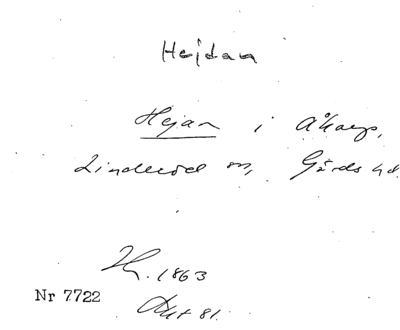 Hejdan
Hejan i Åkarp,
Linderöd sn, Gärds hd.
1863
Nr 7722
81.